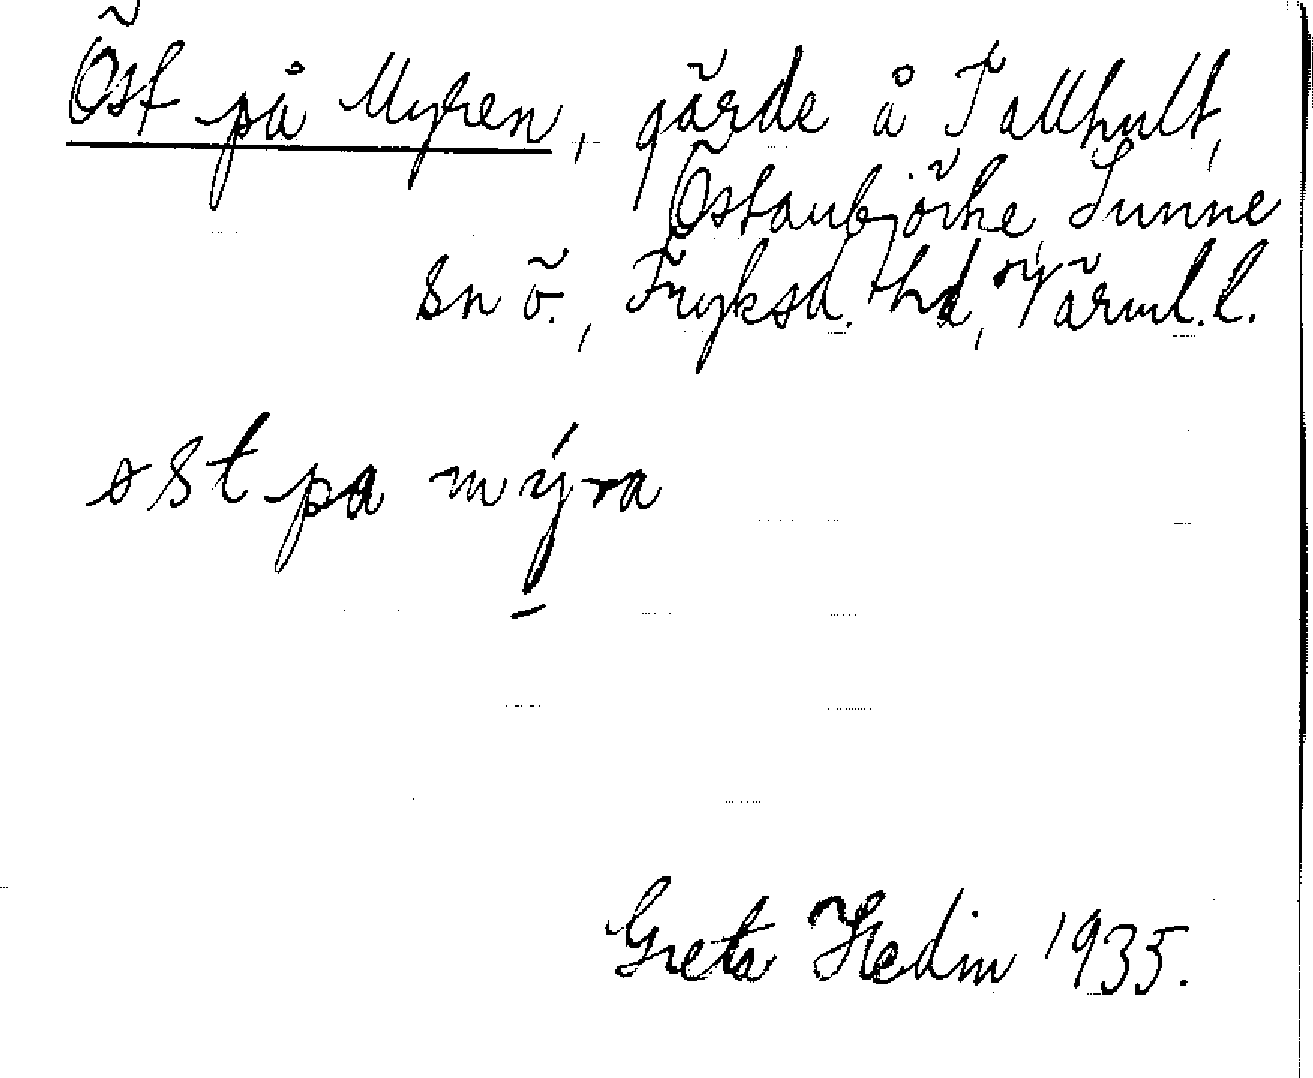 Öst på Myren, gärde å Tallhult,
Östanbjörke, Sunne
sn ö., Fryksd. hd, Värml. l.
øst pa mýra
Greta Hedin 1935.